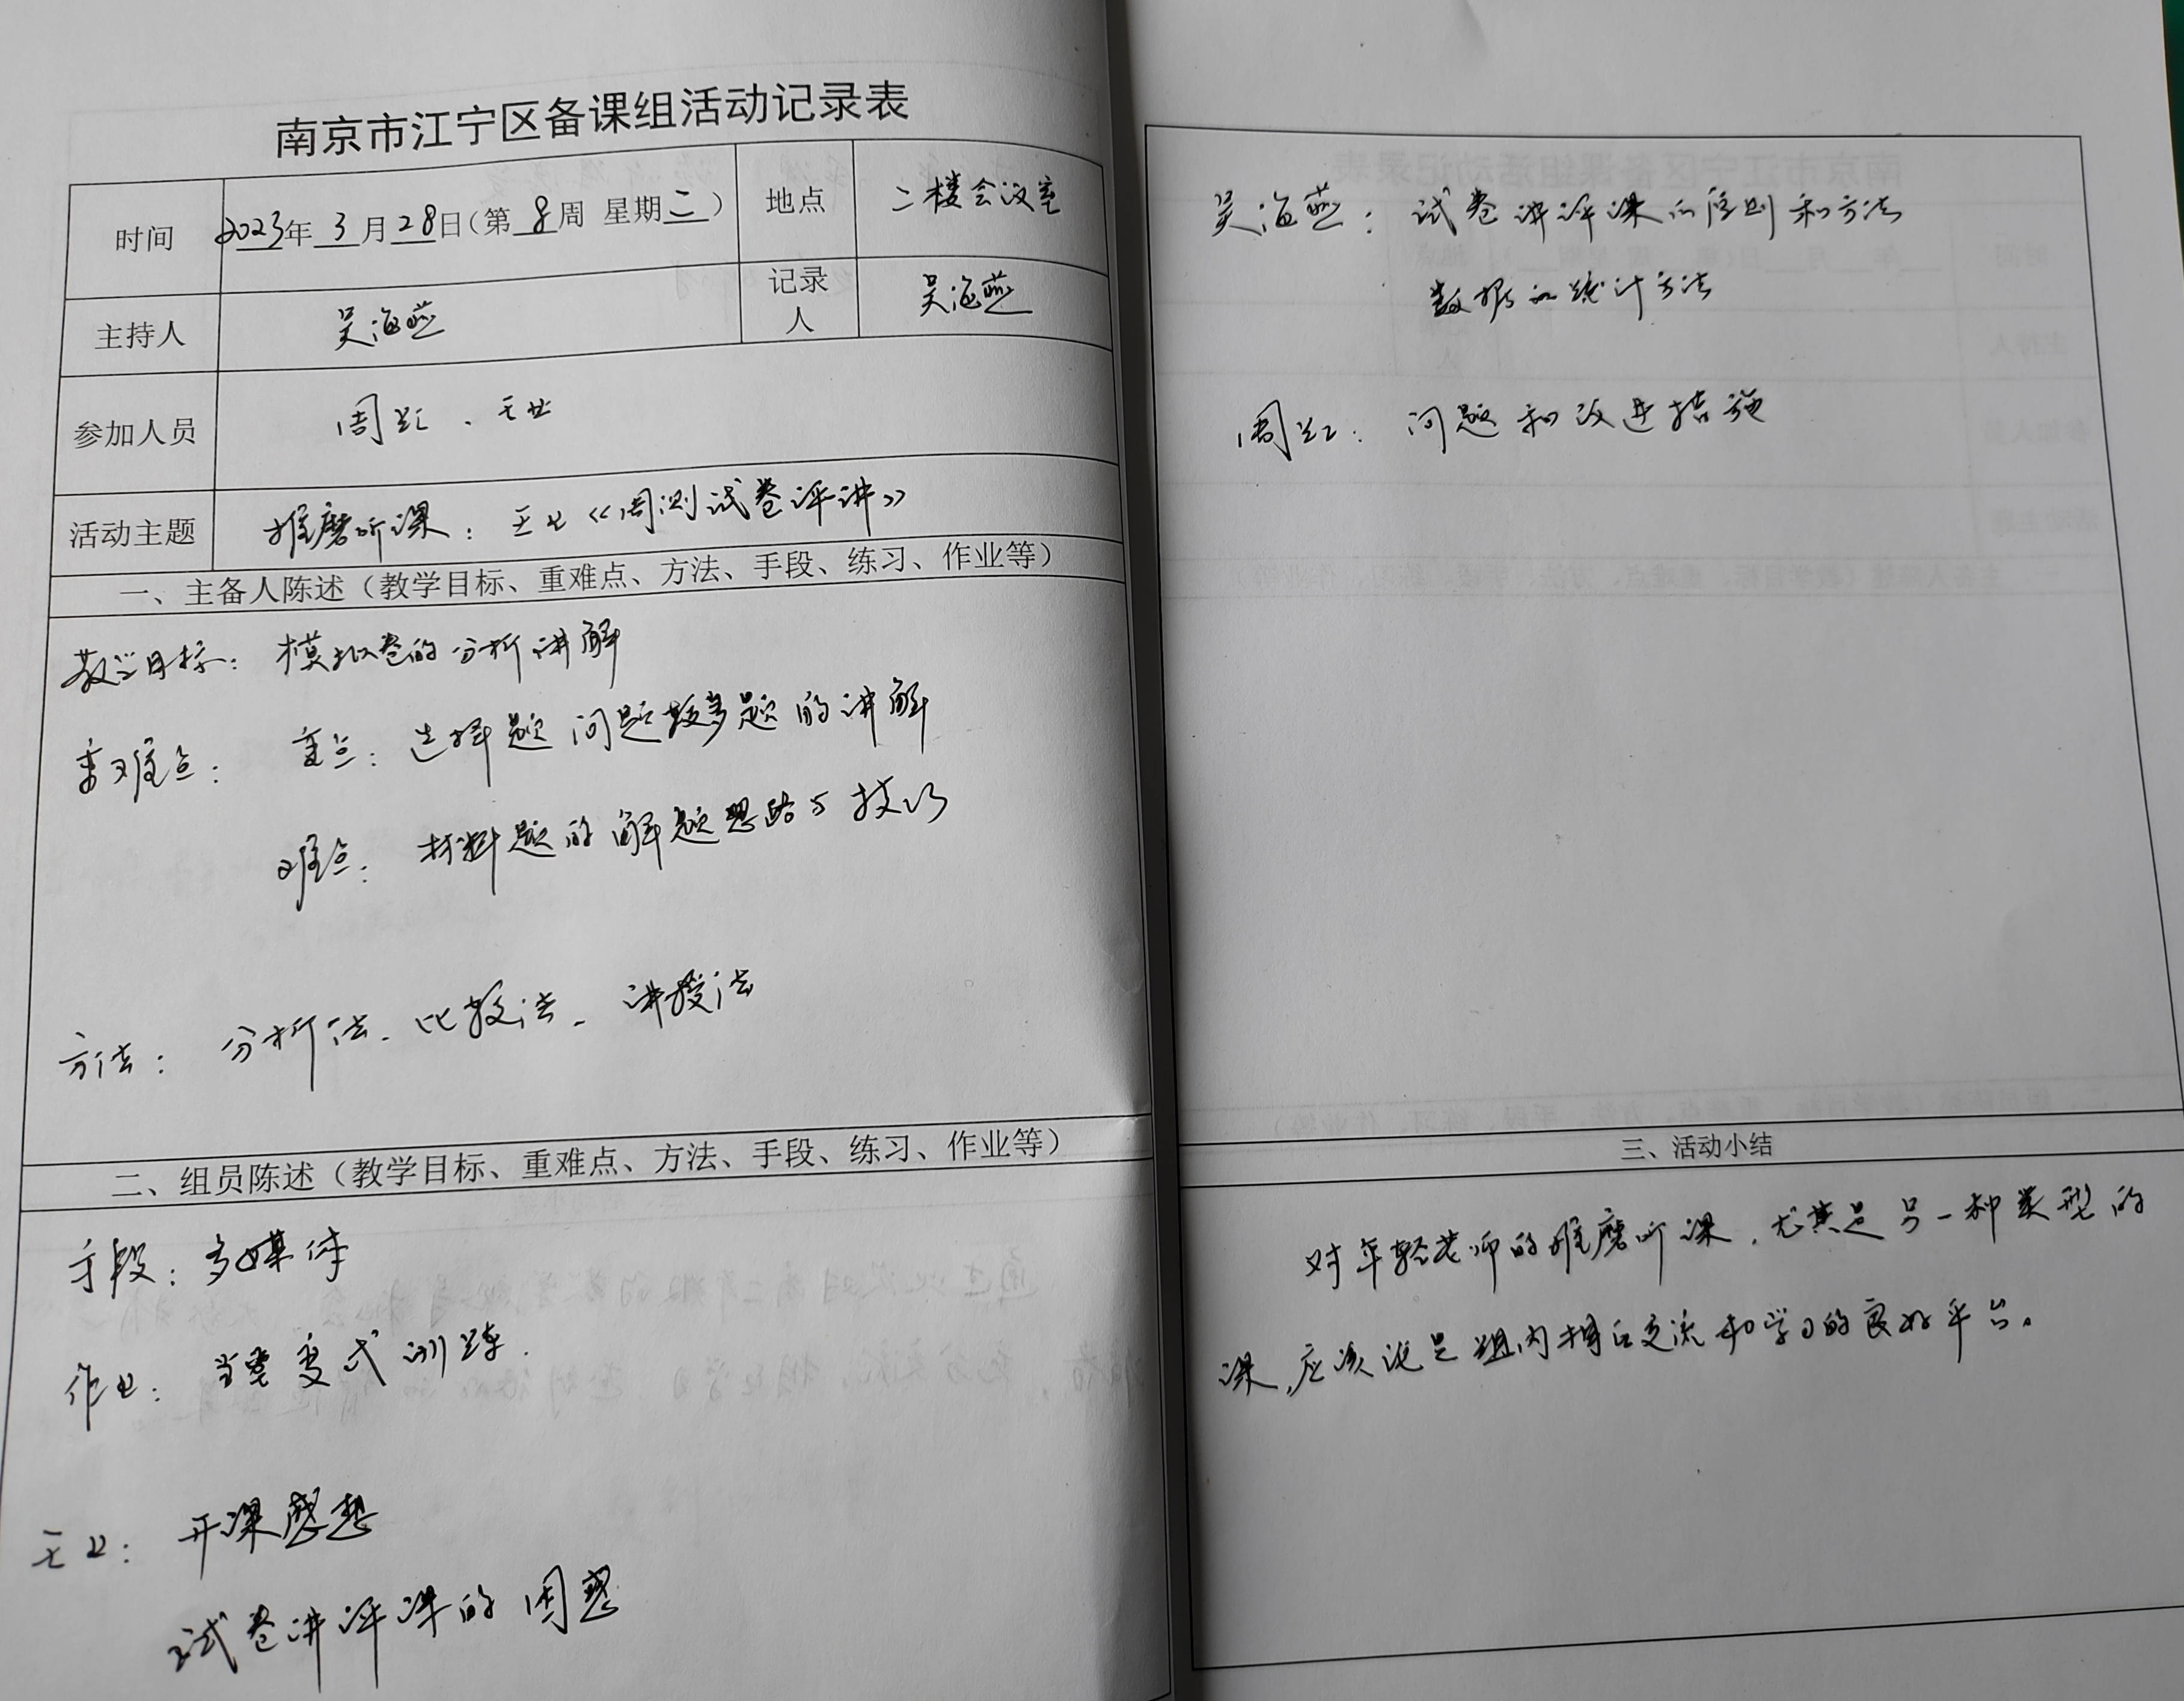 南京市江宁区备课组活动记录表
时间 2023年3月28日(第8周 星期二) 地点 二楼会议室
主持人 吴海燕 记录人 吴海燕
参加人员 周红、王
活动主题 推磨听课：王《周测试卷评讲》
一、主备人陈述（教学目标、重难点、方法、手段、练习、作业等）
教学目标：模拟卷的分析讲解
重难点：重点：选择题问题较多题的讲解
难点：材料题的解题思路与技巧
方法：分析法、比较法、讲授法
二、组员陈述（教学目标、重难点、方法、手段、练习、作业等）
手段：多媒体
作业：当堂变式训练.
王：开课感想
试卷讲评课的困惑
吴海燕：试卷讲评课的原则和方法
数据的统计方法
周红：问题和改进措施
三、活动小结
对年轻老师的推磨听课，尤其是另一种类型的
课，应该说是组内相互交流和学习的良好平台。